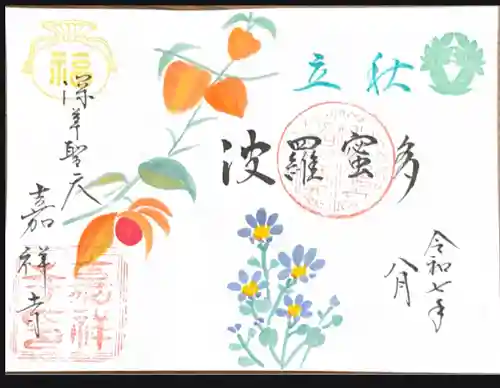 立秋
波羅蜜多
令和七年
八月
福
深草聖天
嘉祥寺